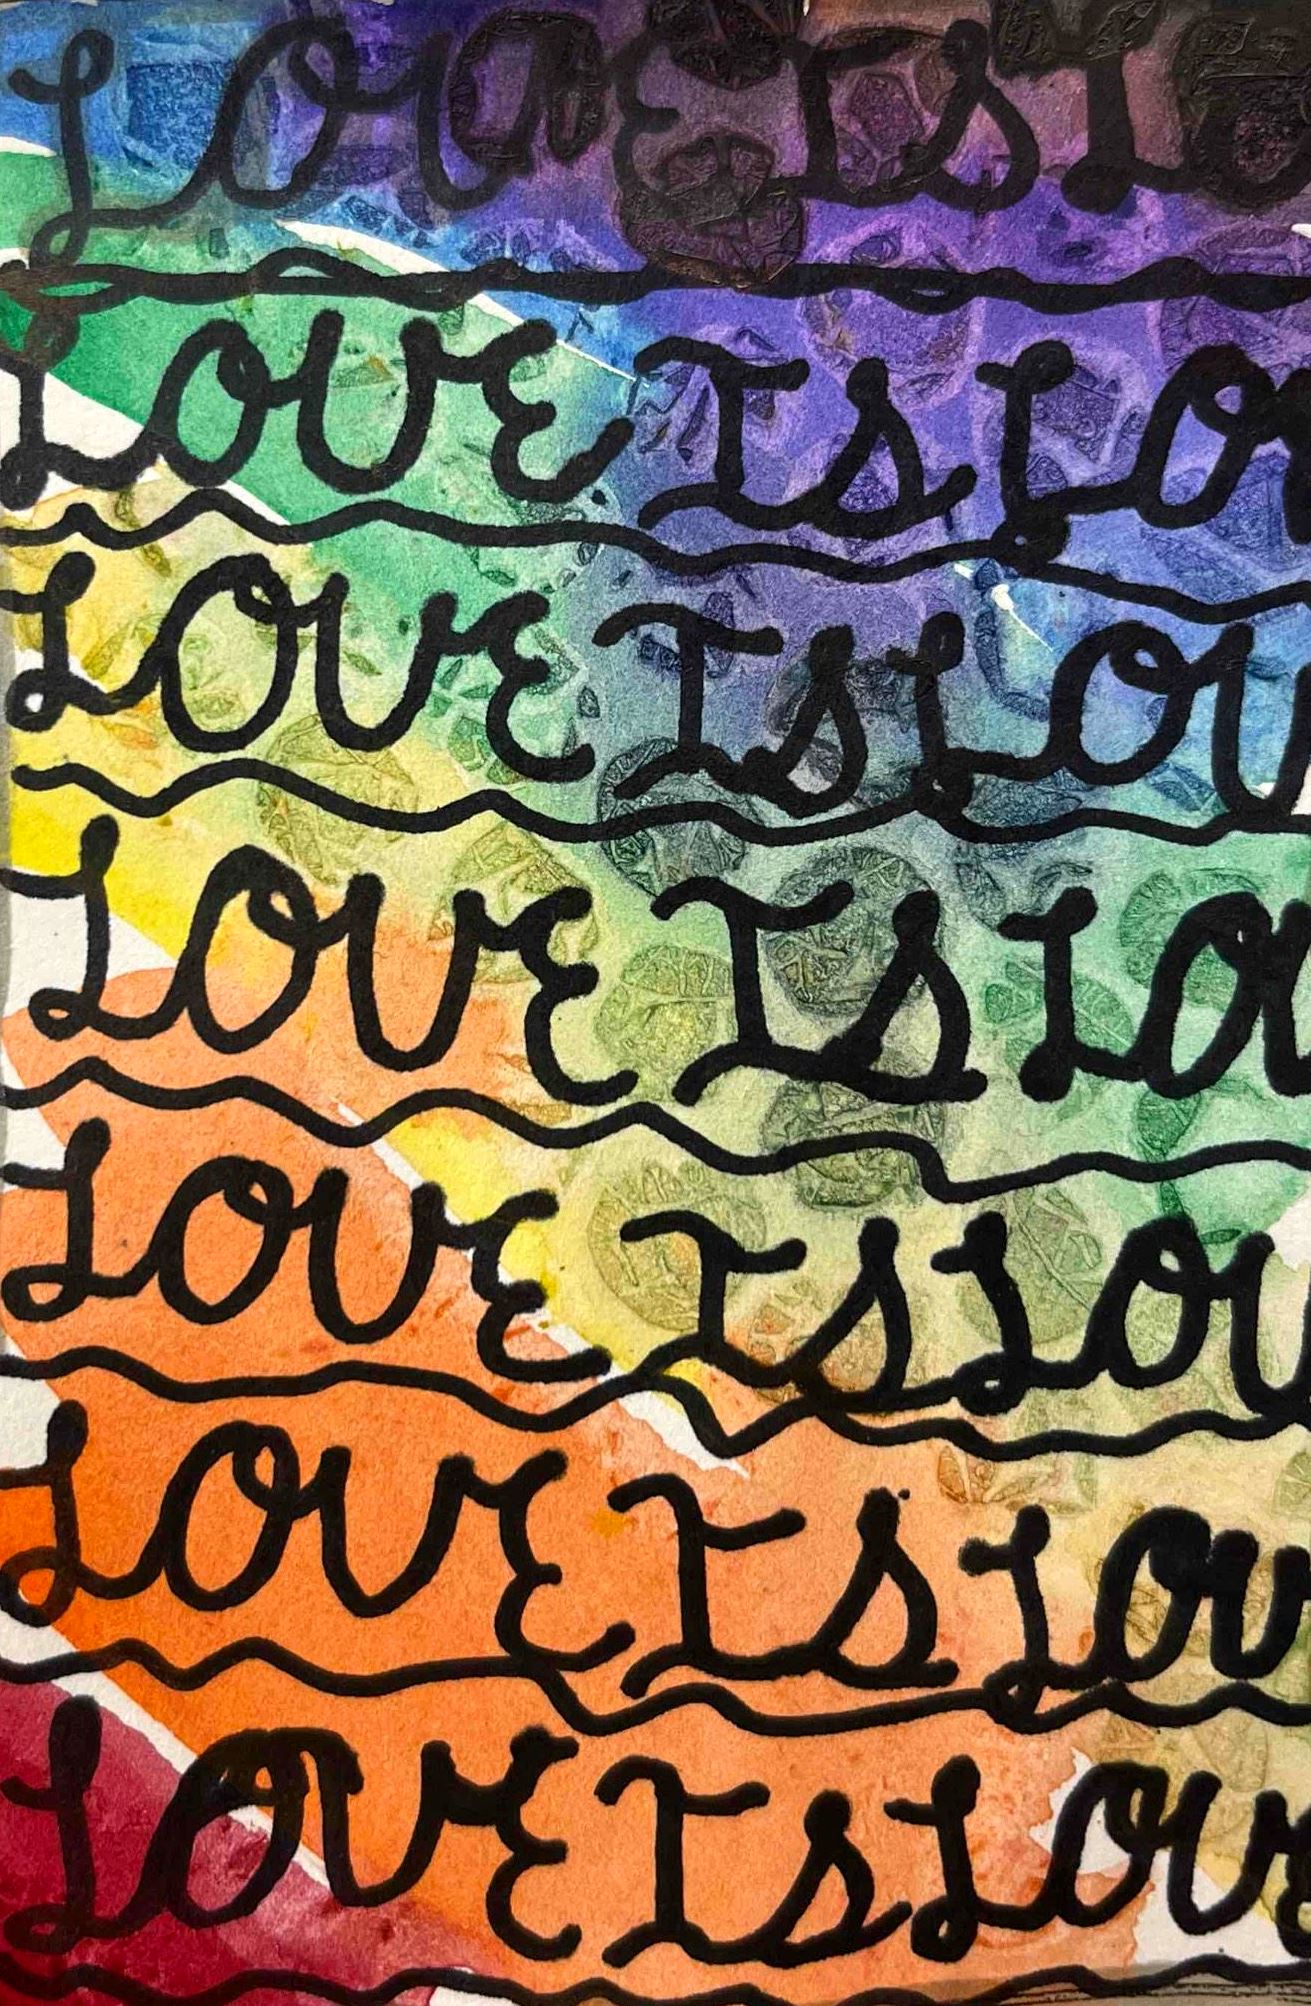 LOVE IS LO
LOVE IS LO
LOVE IS LOV
LOVE IS LOV
LOVE IS LOV
LOVE IS LOV
LOVE IS LOVE